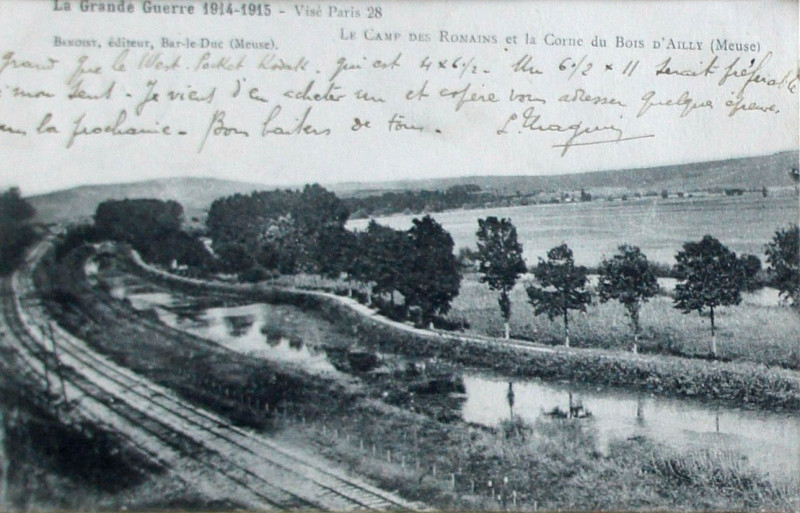 La Grande Guerre 1914-1915 - Visé Paris 28
LE CAMP DES ROMAINS et la Corne du BOIS D'AILLY (Meuse)
BENOIST, éditeur, Bar-le-Duc (Meuse).
grand que le West Pocket Kodak. qui est 4 x 6 1/2 - Un 6 1/2 x 11 serait préférable
mon sent. - Je viens d'en acheter un et espère vous adresser quelque épreuve,
la prochaine - Bons baisers de tous.